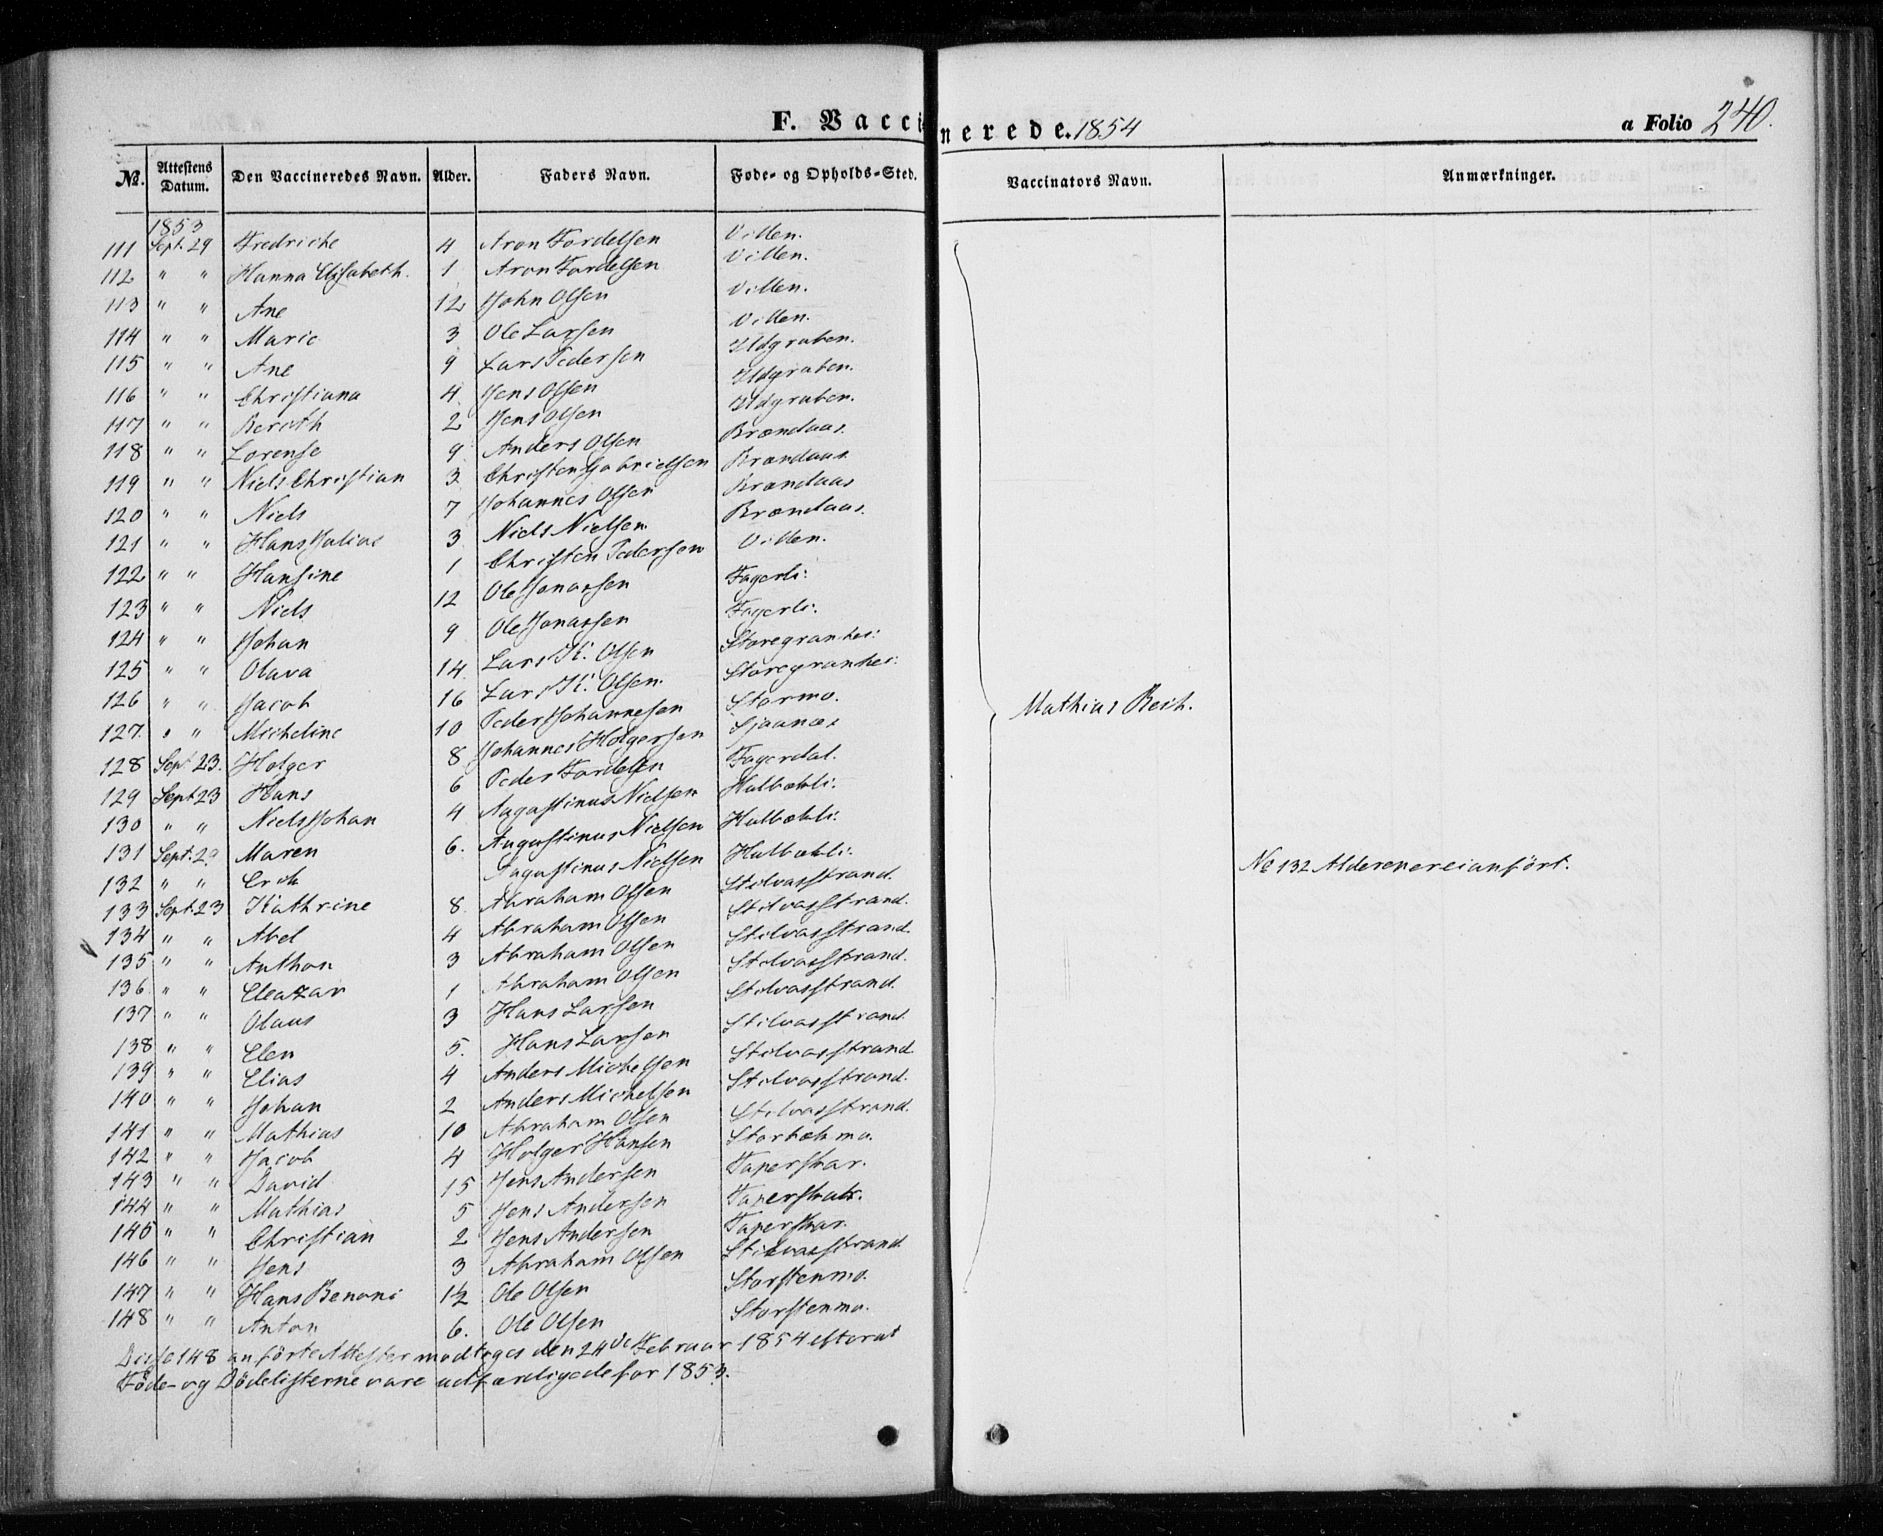 F. Vaccinerede. 1854
a Folio 240.
No. Attestens Datum. Den Vaccineredes Navn. Alder. Faders Navn. Føde- og Opholds-Sted. Vaccinators Navn. Anmærkninger.
1853
111 Sept. 29 Fredriche 4 Aron Tordelsen Villen.
112 " " Hanna Elisabeth. 1 Aron Tordelsen Villen.
113 " " Ane 12 John Olsen Villen.
114 " " Marie 3 Ole Larsen Villen.
115 " " Ane 9 Lars Pedersen Ildgruben.
116 " " Christiana 4 Jens Olsen Ildgruben.
117 " " Bereth 2 Jens Olsen Ildgruben.
118 " " Lorense 9 Anders Olsen Brændaas.
119 " " Niels Christian 3 Christen Gabrielsen Brændaas
120 " " Niels 7 Johannes Olsen Brændaas
121 " " Hans Julius 3 Niels Nielsen Brændaas.
122 " " Hansine 1 Christen Pedersen Villen.
123 " " Niels 12 Ole Jonassen Fagerli.
124 " " Johan 9 Ole Jonassen Fagerli.
125 " " Olava 14 Lars K. Olsen Storegranhei.
126 " " Jacob 16 Lars K. Olsen Storegranhei.
127. " " Micheline 10 Peder Johannesen Stormo.
128 Sept 23. Holger 8 Johannes Holgersen Sjaanæs
129 Sept 23 Hans 6 Peder Tordelsen Fagerdal.
130 " " Niels Johan 4 Augustinus Nielsen Hulbækli.
131 Sept. 29 Maren 6. Augustinus Nielsen Hulbækli.
132 " " Erik Augustinus Nielsen Hulbækli.
133 Sept. 23 Kathrine 8 Abraham Olsen Stilvasstrand.
134 " " Abel 4 Abraham Olsen Stilvasstrand.
135 " " Anthon 3 Abraham Olsen Stilvasstrand.
136 " " Eleazar 1 Abraham Olsen Stilvasstrand.
137 " " Olaus 3 Hans Larsen Stilvasstrand.
138 " " Elen 5. Hans Larsen Stilvasstrand.
139 " " Elias 4 Anders Michelsen Stilvasstrand
140 " " Johan 2 Anders Michelsen Stilvasstrand.
141 " " Mathias 10 Abraham Olsen Stilvasstrand.
142 " " Jacob 4 Holger Hansen Storbækmo.
143 " " David 15 Jens Andersen Taperskar.
144 " " Mathias 5 Jens Andersen Taperskar.
145 " " Christian 2 Jens Andersen Taperskar.
146 " " Jens 3 Abraham Olsen Stilvasstrand
147 " " Hans Benoni 1½ Ole Olsen Storstenmo.
148 " " Anton 6. Ole Olsen Storstenmo.
Disse 148 anførte Attester modtoges den 24de Februar 1854 efterat
Føde- og Dødelisterne vare udfærdigede for 1853.
Mathias Besh.
No 132 Alderen er ei anført.